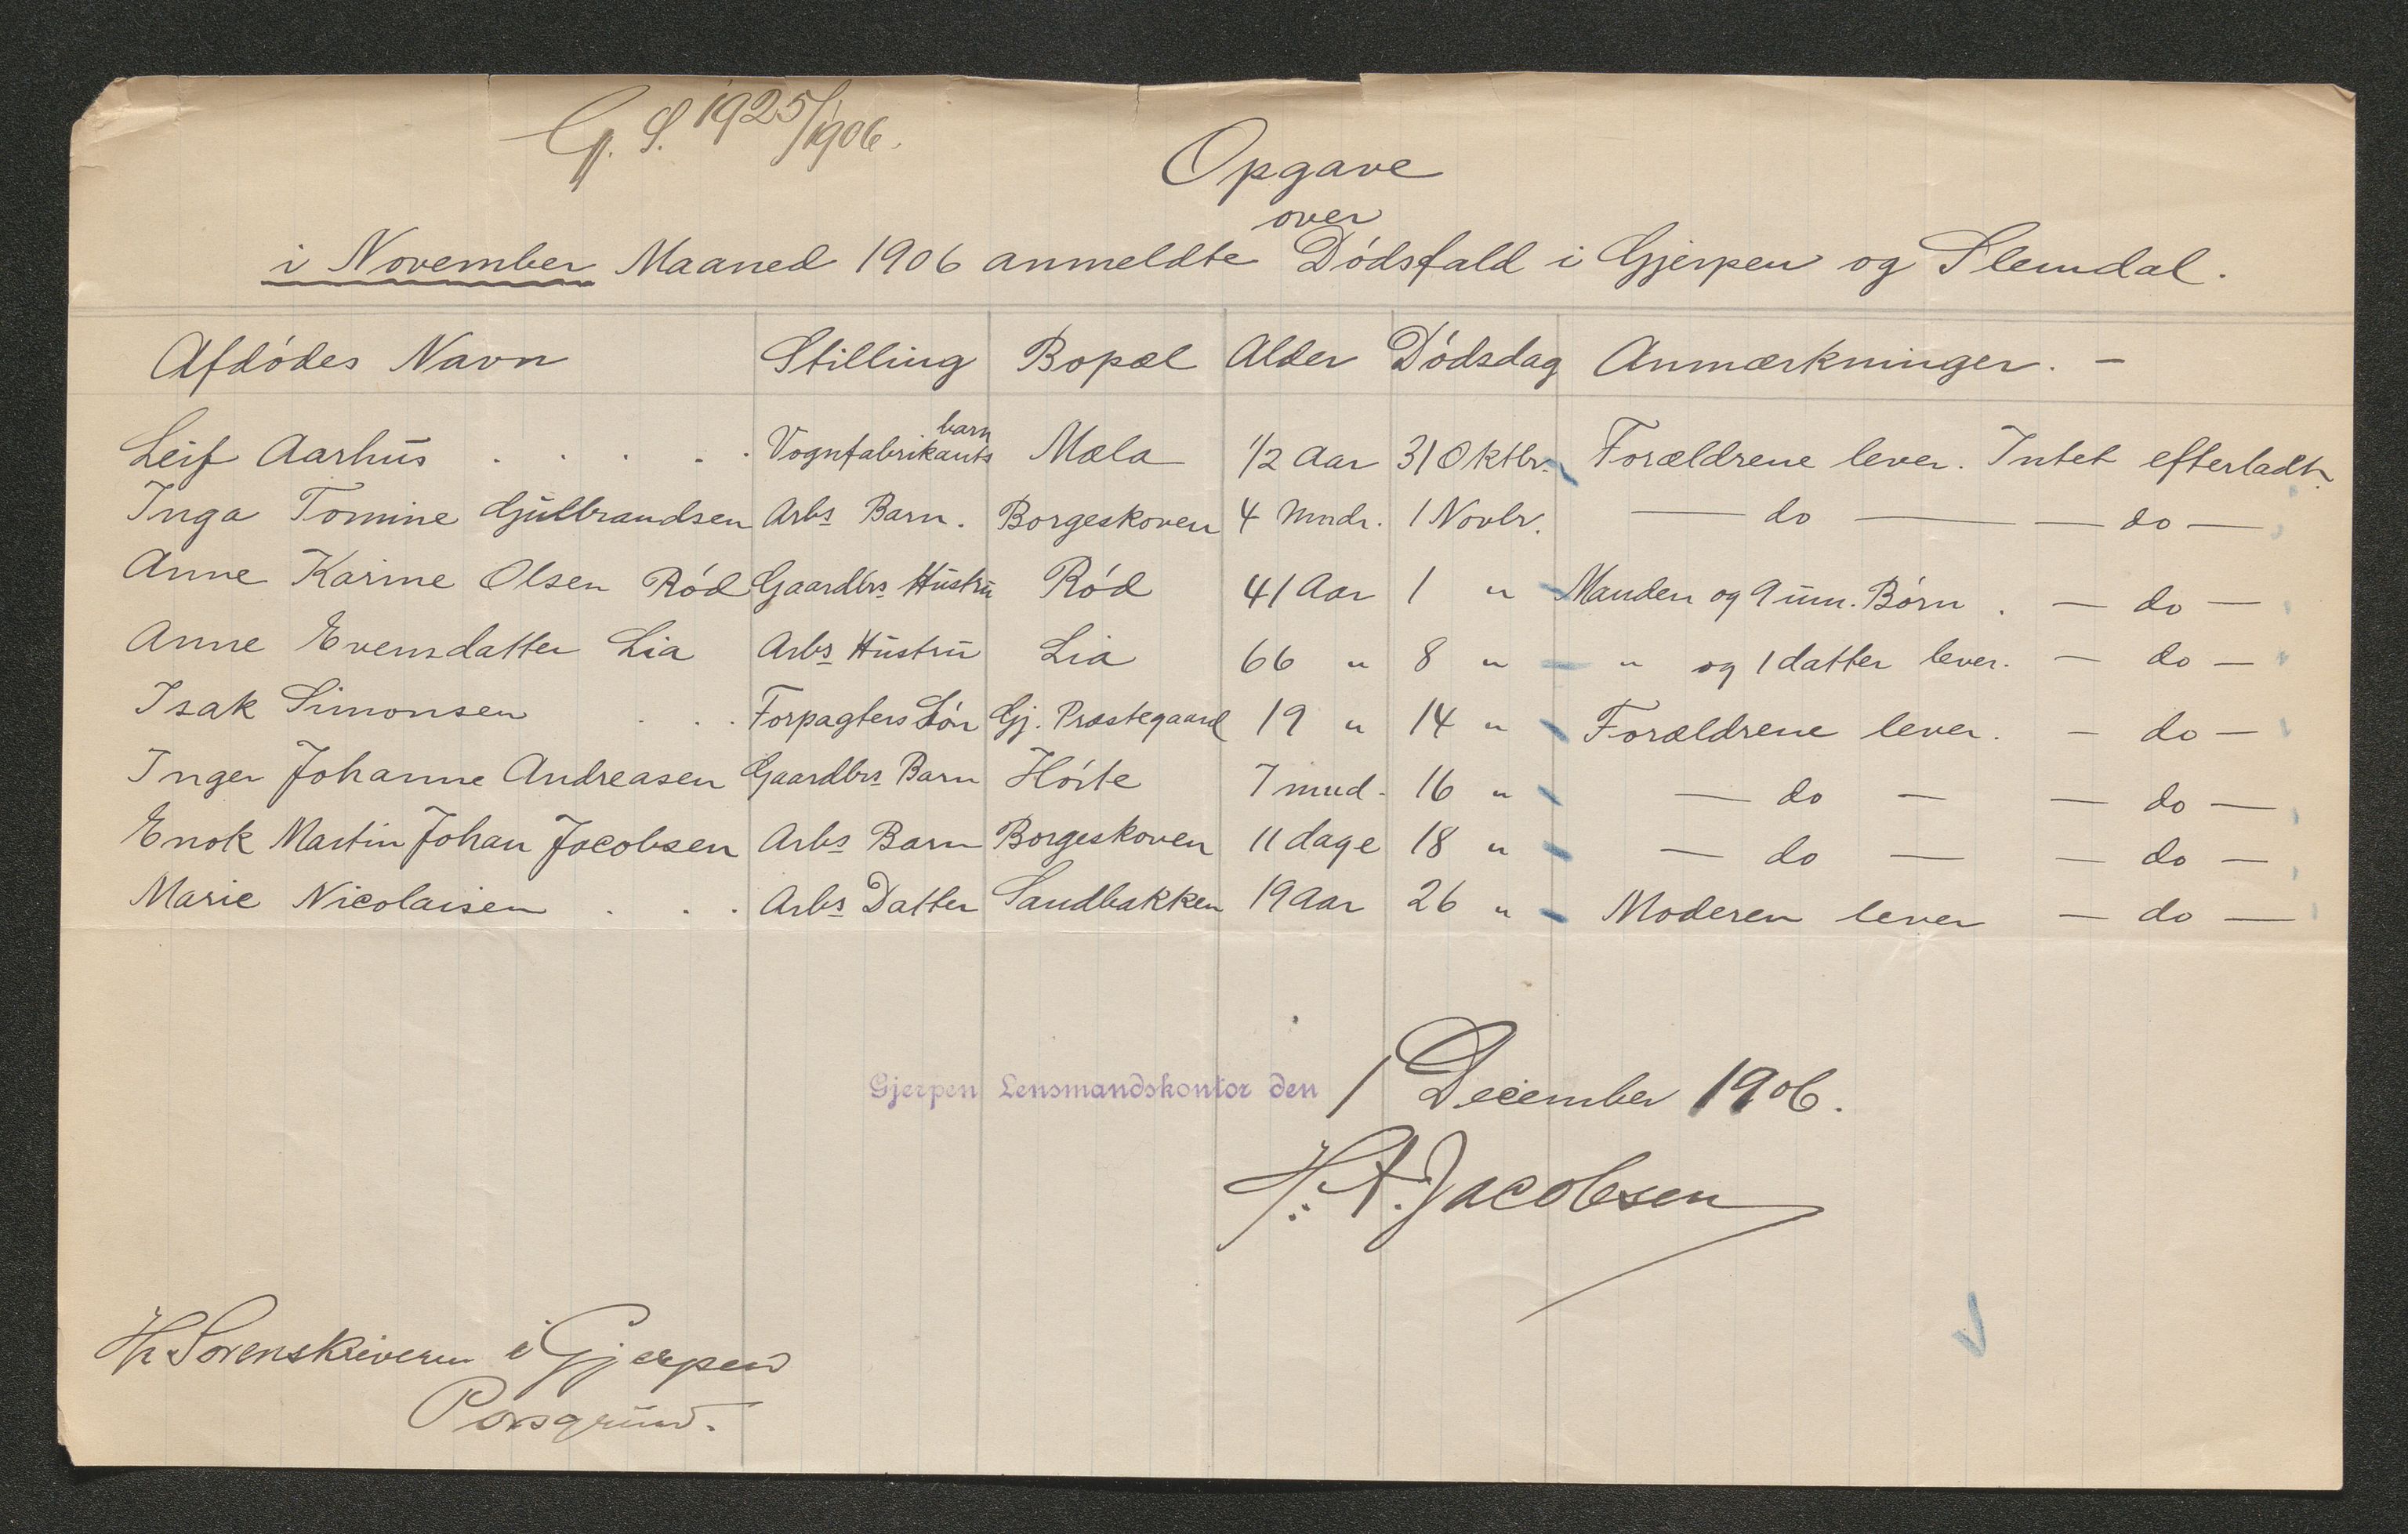 G. S. 1925/1906.
Opgave
over
i November Maaned 1906 anmeldte Dødsfald i Gjerpen og Slemdal.
Afdødes Navn Stilling Bopæl Alder Dødsdag Anmærkninger. —
Leif Aarhus . . . . . Vognfabrikants barn Mæla 1/2 Aar 31 Oktbr. Forældrene lever. Intet efterladt.
Inga Tomine Gulbrandsen Arbs Barn. Borgeskoven 4 Mndr. 1 Novbr. — do — — do —
Anne Karine Olsen Rød Gaardbrs Hustru Rød 41 Aar 1 " Manden og 9 um. Børn . — do —
Anne Evensdatter Lia Arbs Hustru Lia 66 " 8 " " og 1 datter lever. — do —
Isak Simonsen . . . Forpagters Søn Gj. Præstegaard 19 " 14 " Forældrene lever. — do —
Inger Johanne Andreasen Gaardbrs Barn Hóite 7 mnd. 16 " — do — — do —
Enok Martin Johan Jacobsen Arbs Barn Borgeskoven 11 dage 18 " — do — — do —
Marie Nicolaisen . . . Arbs Datter Sandbakken 19 Aar 26 " Moderen lever — do —
Gjerpen Lensmandskontor den 1 December 1906.
H. A. Jacobsen
Hr Sorenskriveren i Gjerpen
Porsgrund.